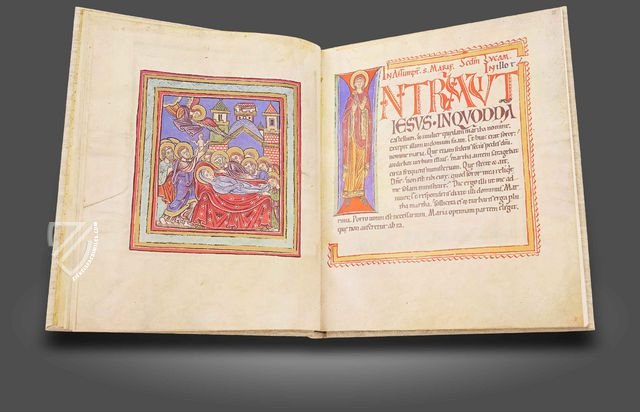 IN Assumpt. s. Marie. Scdm Lucam.
In illo t.
INTRAVIT
IESVS · IN QVODDA
castellum. & mulier quedam martha nomine,
excepit illum in domum suam. Et huic erat soror
nomine maria. Que etiam sedens secus pedes dni
audiebat verbum illius. Martha autem satagebat
circa frequens ministerium. Que stetit & ait.
Dne. non est tibi cure quod soror mea reliqt
me solam ministrare? Dic ergo illi ut me ad
iuvet. Et respondens dixit illi dominus. Mar
tha martha. sollicita es & turbaris erga pluri
ma. Porro unum est necessarium. Maria optimam partem elegit.
que non auferetur ab ea.